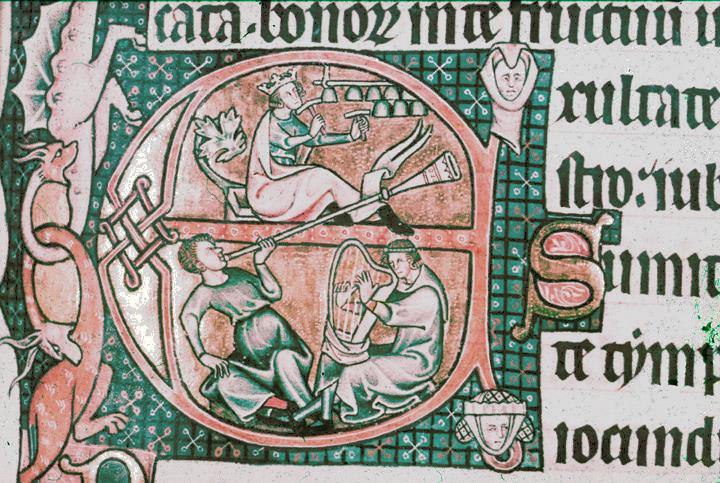 cata. bonoꝝ in te fructuu
Exultate
stro: iub
Sumit
te tymp
iocund